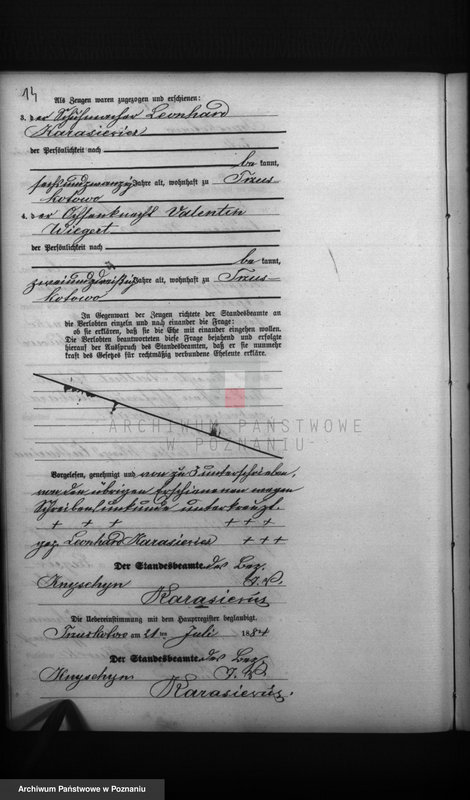 14
Als Zeugen waren zugezogen und erschienen:
3. der Schuhmacher Leonhard
Karasiewicz
der Persönlichkeit nach
be kannt,
sechsundzwanzig Jahre alt, wohnhaft zu Trzus-
kotowo
4. der Ochsenknecht Valentin
Wiegert
der Persönlichkeit nach
be kannt,
zweiunddreißig Jahre alt, wohnhaft zu Trzus-
kotowo
In Gegenwart der Zeugen richtete der Standesbeamte an
die Verlobten einzeln und nach einander die Frage:
ob sie erklären, daß sie die Ehe mit einander eingehen wollen.
Die Verlobten beantworteten diese Frage bejahend und erfolgte
hierauf der Ausspruch des Standesbeamten, daß er sie nunmehr
kraft des Gesetzes für rechtmäßig verbundene Eheleute erkläre.
ARCHIWUM PAŃSTWOWE
W POZNANIU
Vorgelesen, genehmigt und von zu 3 unterschrieben,
von den übrigen Erschienenen wegen
Schreibensunkunde unterkreuzt.
+ + + + + +
gez. Leonhard Karasiewicz + + +
Der Standesbeamte. des Bez.
Knyschyn J. V.
Karasiewicz
Die Uebereinstimmung mit dem Hauptregister beglaubigt.
Trzuskotowo am 21 ten Juli 1884
Der Standesbeamte. des Bez.
Knyschyn J. V.
Karasiewicz.
Archiwum Państwowe w Poznaniu